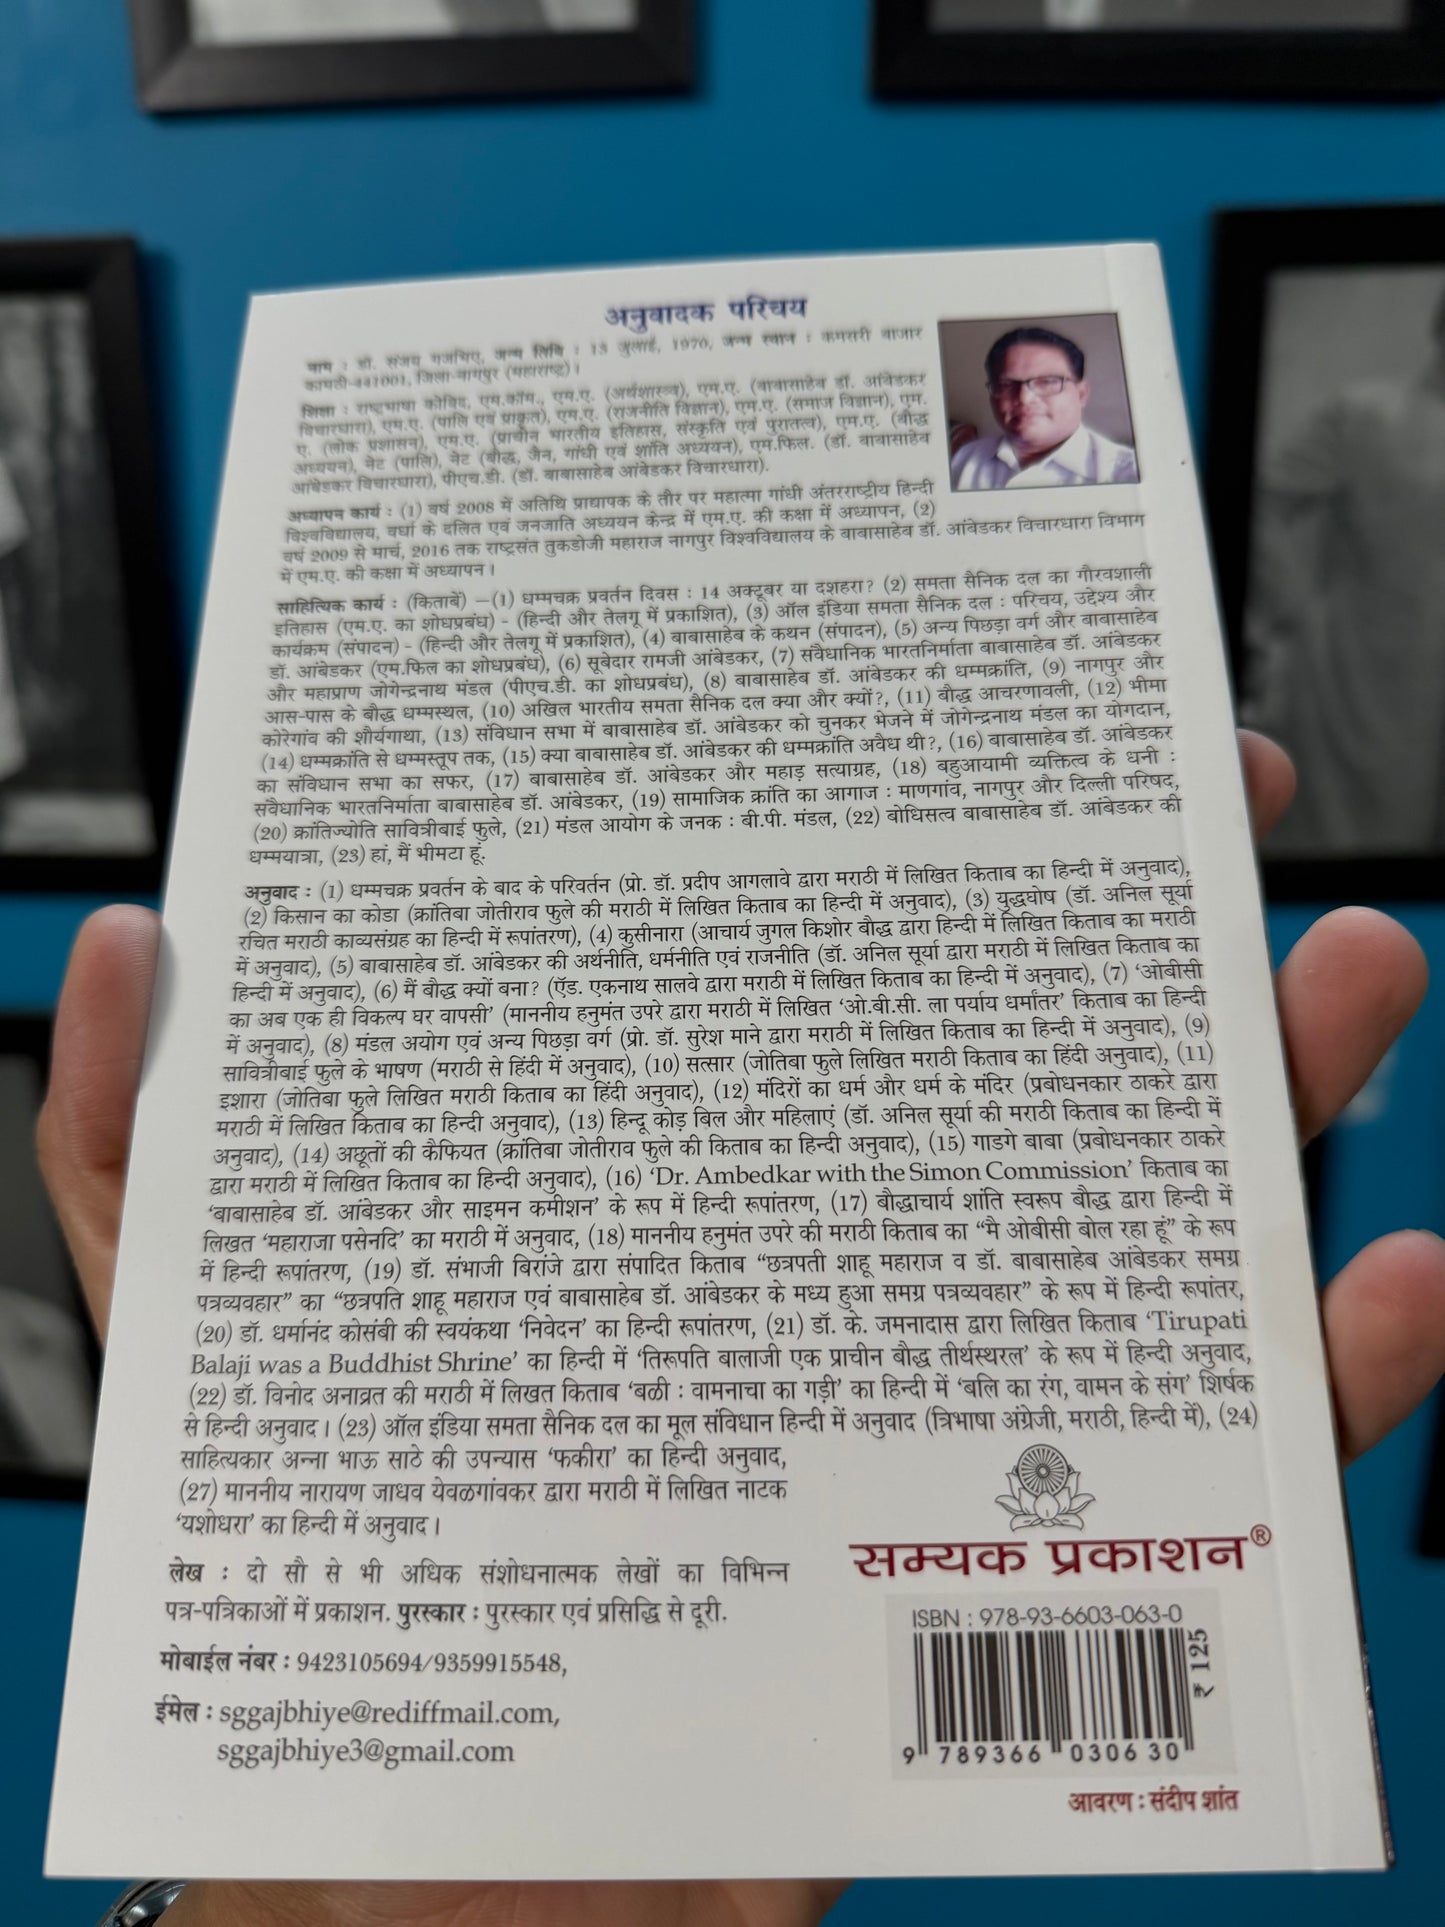 अनुवादक परिचय
नाम : डॉ. संजय गजभिए, जन्म तिथि : 13 जुलाई, 1970, जन्म स्थान : कमसरी बाजार
कामठी-441001, जिला-नागपुर (महाराष्ट्र)।
शिक्षा : राष्ट्रभाषा कोविद, एम.कॉम., एम.ए. (अर्थशास्त्र), एम.ए. (बाबासाहेब डॉ. आंबेडकर
विचारधारा), एम.ए. (पालि एवं प्राकृत), एम.ए. (राजनीति विज्ञान), एम.ए. (समाज विज्ञान), एम.
ए. (लोक प्रशासन), एम.ए. (प्राचीन भारतीय इतिहास, संस्कृति एवं पुरातत्व), एम.ए. (बौद्ध
अध्ययन), नेट (पालि), नेट (बौद्ध, जैन, गांधी एवं शांति अध्ययन), एम.फिल. (डॉ. बाबासाहेब
आंबेडकर विचारधारा), पीएच.डी. (डॉ. बाबासाहेब आंबेडकर विचारधारा).
अध्यापन कार्य : (1) वर्ष 2008 में अतिथि प्राध्यापक के तौर पर महात्मा गांधी अंतरराष्ट्रीय हिन्दी
विश्वविद्यालय, वर्धा के दलित एवं जनजाति अध्ययन केन्द्र में एम.ए. की कक्षा में अध्यापन, (2)
वर्ष 2009 से मार्च, 2016 तक राष्ट्रसंत तुकडोजी महाराज नागपुर विश्वविद्यालय के बाबासाहेब डॉ. आंबेडकर विचारधारा विभाग
में एम.ए. की कक्षा में अध्यापन।
साहित्यिक कार्य : (किताबें) –(1) धम्मचक्र प्रवर्तन दिवस : 14 अक्टूबर या दशहरा? (2) समता सैनिक दल का गौरवशाली
इतिहास (एम.ए. का शोधप्रबंध) - (हिन्दी और तेलगू में प्रकाशित), (3) ऑल इंडिया समता सैनिक दल : परिचय, उद्देश्य और
कार्यक्रम (संपादन) - (हिन्दी और तेलगू में प्रकाशित), (4) बाबासाहेब के कथन (संपादन), (5) अन्य पिछड़ा वर्ग और बाबासाहेब
डॉ. आंबेडकर (एम.फिल का शोधप्रबंध), (6) सूबेदार रामजी आंबेडकर, (7) संवैधानिक भारतनिर्माता बाबासाहेब डॉ. आंबेडकर
और महाप्राण जोगेन्द्रनाथ मंडल (पीएच.डी. का शोधप्रबंध), (8) बाबासाहेब डॉ. आंबेडकर की धम्मक्रांति, (9) नागपुर और
आस-पास के बौद्ध धम्मस्थल, (10) अखिल भारतीय समता सैनिक दल क्या और क्यों?, (11) बौद्ध आचरणावली, (12) भीमा
कोरेगांव की शौर्यगाथा, (13) संविधान सभा में बाबासाहेब डॉ. आंबेडकर को चुनकर भेजने में जोगेन्द्रनाथ मंडल का योगदान,
(14) धम्मक्रांति से धम्मस्तूप तक, (15) क्या बाबासाहेब डॉ. आंबेडकर की धम्मक्रांति अवैध थी?, (16) बाबासाहेब डॉ. आंबेडकर
का संविधान सभा का सफर, (17) बाबासाहेब डॉ. आंबेडकर और महाड़ सत्याग्रह, (18) बहुआयामी व्यक्तित्व के धनी :
संवैधानिक भारतनिर्माता बाबासाहेब डॉ. आंबेडकर, (19) सामाजिक क्रांति का आगाज : माणगांव, नागपुर और दिल्ली परिषद,
(20) क्रांतिज्योति सावित्रीबाई फुले, (21) मंडल आयोग के जनक : बी.पी. मंडल, (22) बोधिसत्व बाबासाहेब डॉ. आंबेडकर की
धम्मयात्रा, (23) हां, मैं भीमटा हूं.
अनुवाद : (1) धम्मचक्र प्रवर्तन के बाद के परिवर्तन (प्रो. डॉ. प्रदीप आगलावे द्वारा मराठी में लिखित किताब का हिन्दी में अनुवाद),
(2) किसान का कोडा (क्रांतिबा जोतीराव फुले की मराठी में लिखित किताब का हिन्दी में अनुवाद), (3) युद्धघोष (डॉ. अनिल सूर्या
रचित मराठी काव्यसंग्रह का हिन्दी में रूपांतरण), (4) कुसीनारा (आचार्य जुगल किशोर बौद्ध द्वारा हिन्दी में लिखित किताब का मराठी
में अनुवाद), (5) बाबासाहेब डॉ. आंबेडकर की अर्थनीति, धर्मनीति एवं राजनीति (डॉ. अनिल सूर्या द्वारा मराठी में लिखित किताब का
हिन्दी में अनुवाद), (6) मैं बौद्ध क्यों बना? (ऍड. एकनाथ सालवे द्वारा मराठी में लिखित किताब का हिन्दी में अनुवाद), (7) ‘ओबीसी
का अब एक ही विकल्प घर वापसी’ (माननीय हनुमंत उपरे द्वारा मराठी में लिखित ‘ओ.बी.सी. ला पर्याय धर्मांतर’ किताब का हिन्दी
में अनुवाद), (8) मंडल अयोग एवं अन्य पिछड़ा वर्ग (प्रो. डॉ. सुरेश माने द्वारा मराठी में लिखित किताब का हिन्दी में अनुवाद), (9)
सावित्रीबाई फुले के भाषण (मराठी से हिंदी में अनुवाद), (10) सत्सार (जोतिबा फुले लिखित मराठी किताब का हिंदी अनुवाद), (11)
इशारा (जोतिबा फुले लिखित मराठी किताब का हिंदी अनुवाद), (12) मंदिरों का धर्म और धर्म के मंदिर (प्रबोधनकार ठाकरे द्वारा
मराठी में लिखित किताब का हिन्दी अनुवाद), (13) हिन्दू कोड़ बिल और महिलाएं (डॉ. अनिल सूर्या की मराठी किताब का हिन्दी में
अनुवाद), (14) अछूतों की कैफियत (क्रांतिबा जोतीराव फुले की किताब का हिन्दी अनुवाद), (15) गाडगे बाबा (प्रबोधनकार ठाकरे
द्वारा मराठी में लिखित किताब का हिन्दी अनुवाद), (16) ‘Dr. Ambedkar with the Simon Commission’ किताब का
‘बाबासाहेब डॉ. आंबेडकर और साइमन कमीशन’ के रूप में हिन्दी रूपांतरण, (17) बौद्धाचार्य शांति स्वरूप बौद्ध द्वारा हिन्दी में
लिखत ‘महाराजा पसेनदि’ का मराठी में अनुवाद, (18) माननीय हनुमंत उपरे की मराठी किताब का “मै ओबीसी बोल रहा हूं” के रूप
में हिन्दी रूपांतरण, (19) डॉ. संभाजी बिरांजे द्वारा संपादित किताब “छत्रपती शाहू महाराज व डॉ. बाबासाहेब आंबेडकर समग्र
पत्रव्यवहार” का “छत्रपति शाहू महाराज एवं बाबासाहेब डॉ. आंबेडकर के मध्य हुआ समग्र पत्रव्यवहार” के रूप में हिन्दी रूपांतर,
(20) डॉ. धर्मानंद कोसंबी की स्वयंकथा ‘निवेदन’ का हिन्दी रूपांतरण, (21) डॉ. के. जमनादास द्वारा लिखित किताब ‘Tirupati
Balaji was a Buddhist Shrine’ का हिन्दी में ‘तिरूपति बालाजी एक प्राचीन बौद्ध तीर्थस्थल’ के रूप में हिन्दी अनुवाद,
(22) डॉ. विनोद अनाव्रत की मराठी में लिखत किताब ‘बळी : वामनाचा का गड़ी’ का हिन्दी में ‘बलि का रंग, वामन के संग’ शिर्षक
से हिन्दी अनुवाद। (23) ऑल इंडिया समता सैनिक दल का मूल संविधान हिन्दी में अनुवाद (त्रिभाषा अंग्रेजी, मराठी, हिन्दी में), (24)
साहित्यकार अन्ना भाऊ साठे की उपन्यास ‘फकीरा’ का हिन्दी अनुवाद,
(27) माननीय नारायण जाधव येवळगांवकर द्वारा मराठी में लिखित नाटक
‘यशोधरा’ का हिन्दी में अनुवाद।
लेख : दो सौ से भी अधिक संशोधनात्मक लेखों का विभिन्न
पत्र-पत्रिकाओं में प्रकाशन. पुरस्कार : पुरस्कार एवं प्रसिद्धि से दूरी.
मोबाईल नंबर : 9423105694/9359915548,
ईमेल : sggajbhiye@rediffmail.com,
sggajbhiye3@gmail.com
सम्यक प्रकाशन®
ISBN : 978-93-6603-063-0
₹ 125
9 789366 030630
आवरण : संदीप शांत